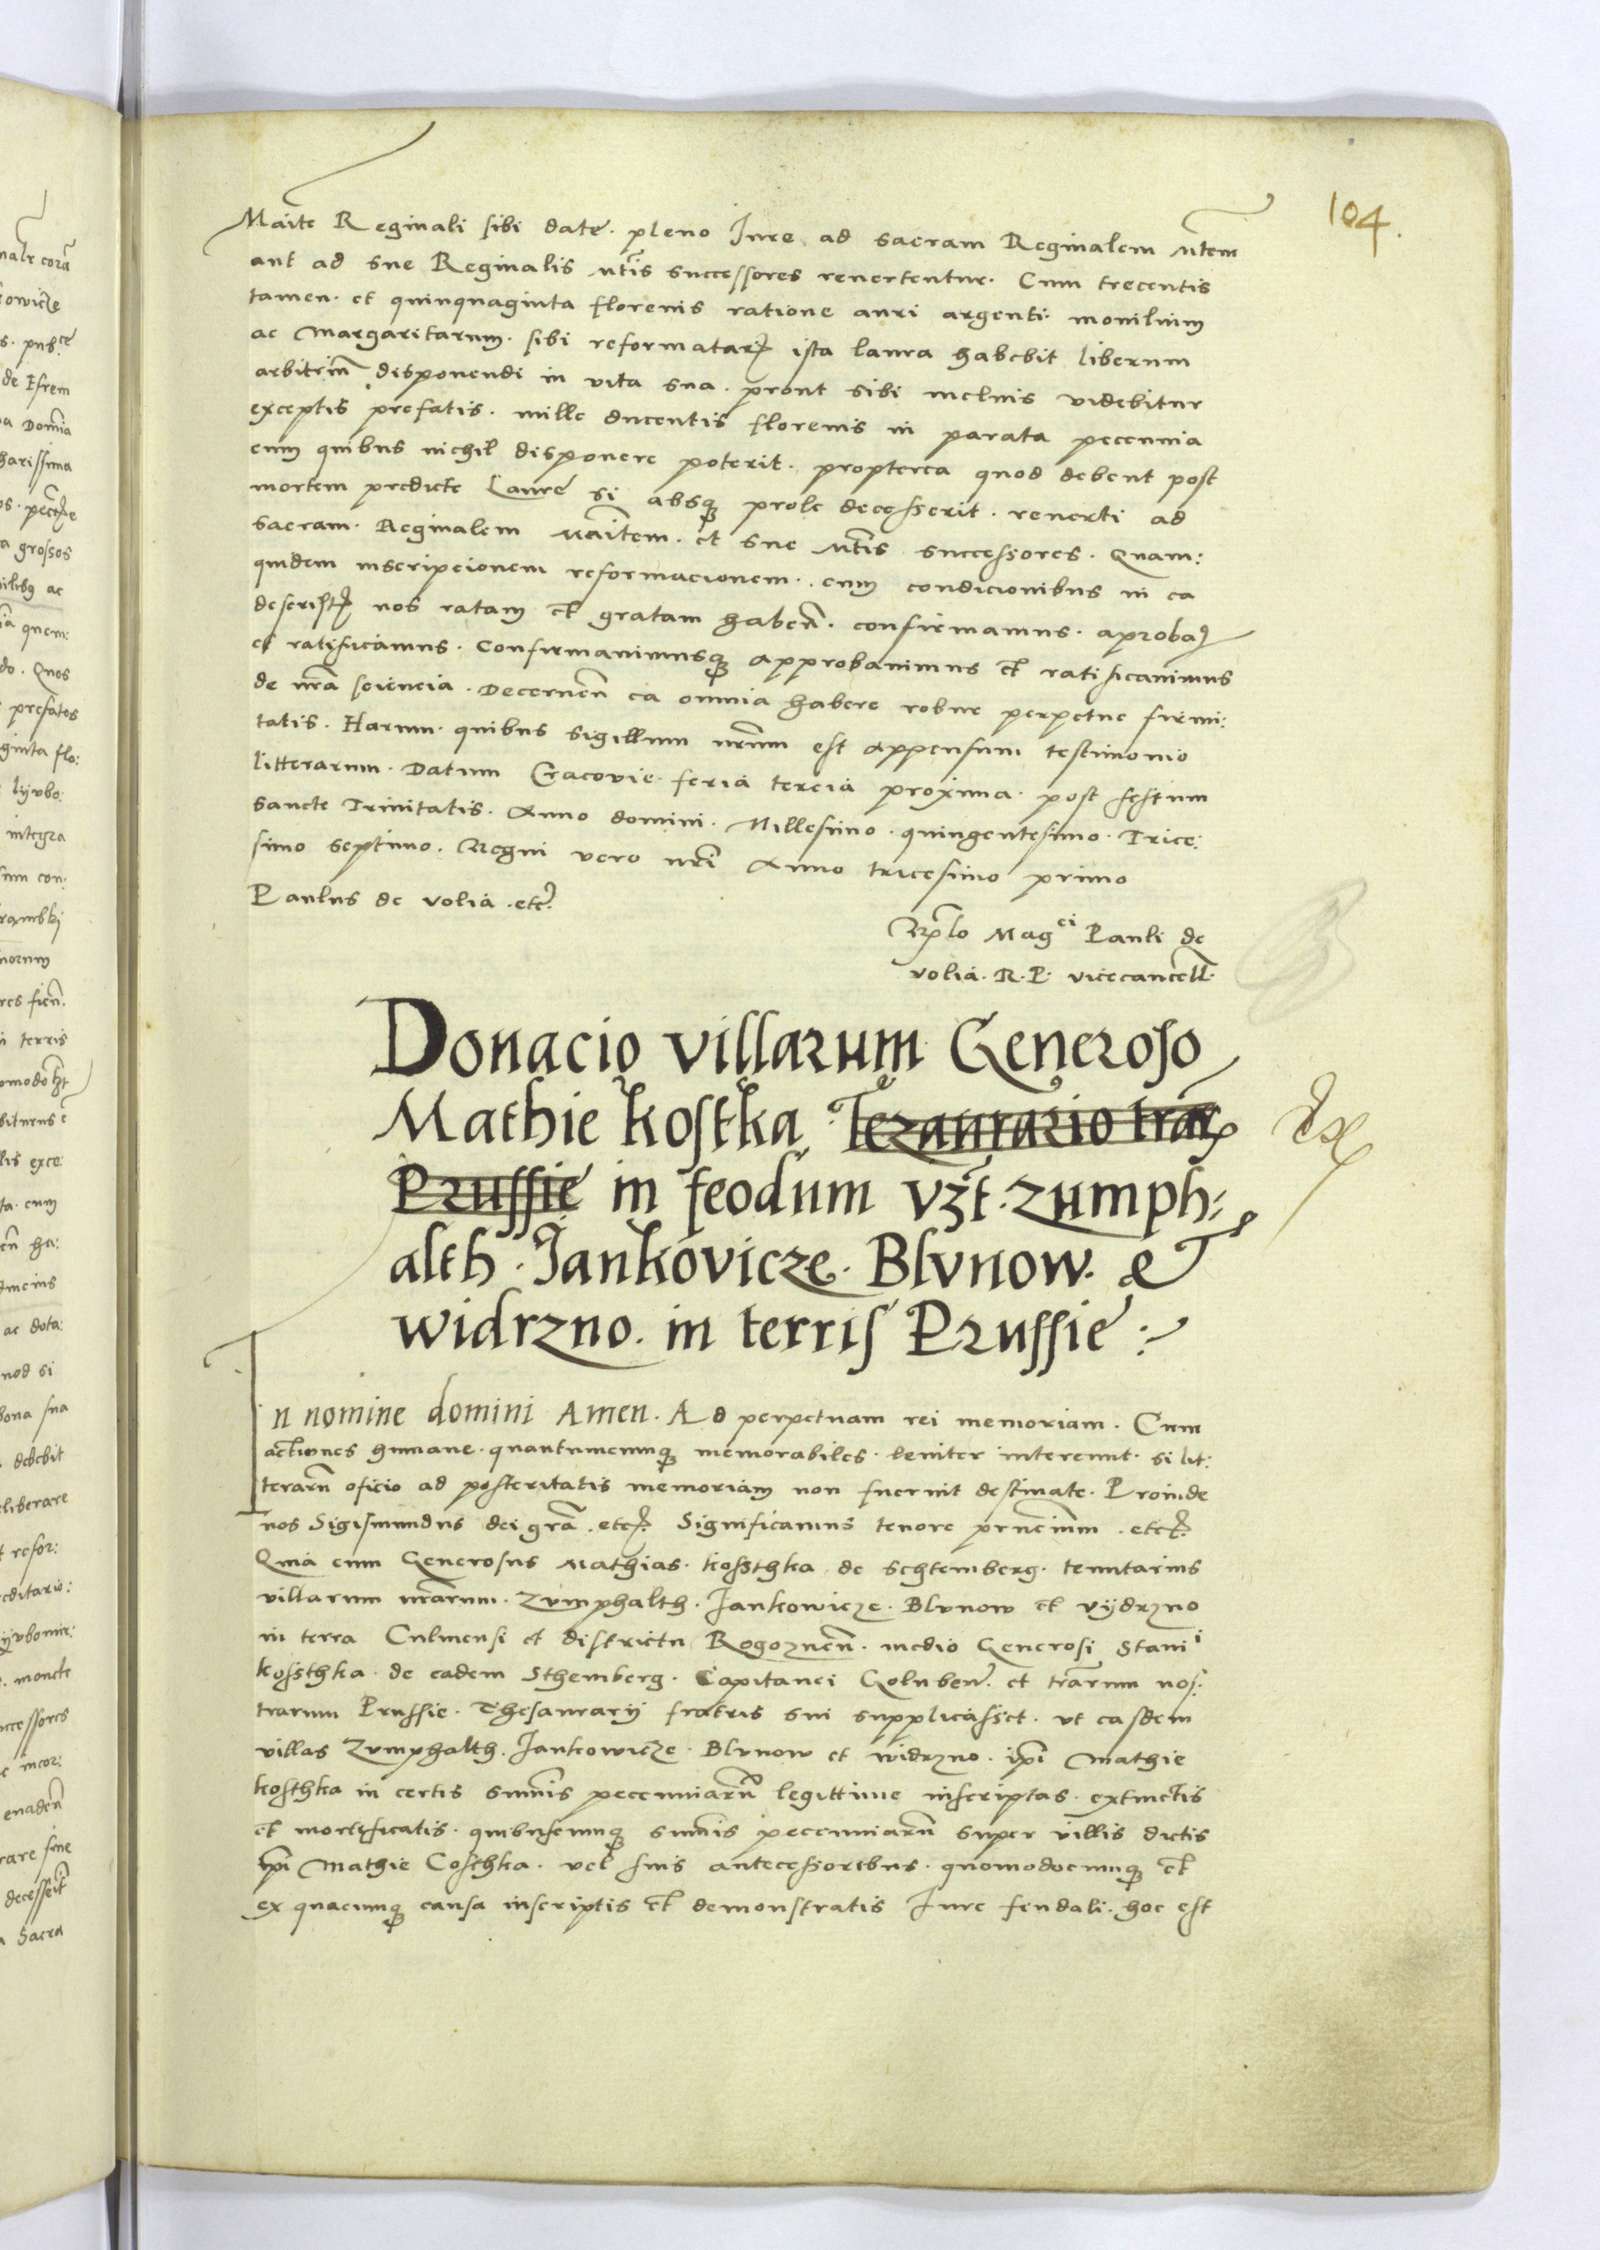 104.
Maiẽ Reginali sibi datẽ. pleno Jure ad sacram Reginalem Mtẽm
aut ad sue Reginalis Mtĩs successores revertentur. Cum trecentis
tamen. et quinquaginta florenis ratione auri argenti. monilium
ac Margaritarum. sibi reformataꝝ ista laura habebit liberum
arbitriũ disponendi in vita sua. prout sibi melius videbitur
exceptis prefatis. mille ducentis florenis in parata peccunia
cum quibus nichil disponere poterit. propterea quod debent post
mortem predicte Laure si absqꝫ prole decesserit. reverti ad
sacram. Reginalem Maitẽm. et sue Mtĩs successores. Quam:
quidem inscripcionem reformacionem. cum condicionibus in ea
descriptꝭ nos ratam et gratam habeñ. confirmamus. aprobaꝫ
et ratificamus. Confirmavimusqꝫ approbavimus et ratificavimus
de nrã sciencia. Decerneñ ea omnia habere robur perpetue firmi:
tatis. Harum. quibus sigillum nrũm est appensum testimonio
litterarum. Datum Cracovie. feria tercia proxima. post festum
sancte Trinitatis. Anno domini. Millesimo. quingentesimo. Trice:
simo septimo. Regni vero nrĩ Anno tricesimo primo
Paulus de volia. etcꝭ.
Rłõ Magci Pauli de
volia. R. P. vicecancełł.
Donacio villarum Generoso
Mathie kostka Tezaurario trãꝝ
Prussie in feodum vꝫt. zumph:
alth. Jankovicze. Blvnow. et
widrzno. in terris Prussie:
In nomine domini Amen. Ad perpetuam rei memoriam. Cum
actiones humane. quantumcumqꝫ memorabiles. leviter intereunt. si lit:
terarũ oficio ad posteritatis memoriam non fuerint destinate. Proinde
nos Sigismundus dei grã. etcꝭ. Significamus tenore prñcium. etcꝭ.
Quia cum Generosus Mathias. kossthka de Schtemberg. tenutarius
villarum nrãrum. Zumphalth. Jankowicze. Blvnow et vydrzno
in terra Culmensi et districtu Rogoznẽn. medio Generosi Stanii
kossthka. de eadem Sthemberg. Capitanei Golubeñ. et trãrum nos:
trarum Prussie. Thesaurarij fratris sui supplicasset. ut easdem
villas Zumphalth. Jankowicze. Blvnow et widrzno. ipĩ Mathie
kosthka in certis sum̃is peccuniarũ legittime inscriptas. extinctis
et mortificatis. quibuscumqꝫ sum̃is peccuniarũ super villis dictis
ipĩ Mathie Costhka. vel suis antecessoribus. quomodocumqꝫ et
ex quacumqꝫ causa inscriptis et demonstratis Jure feudali. hoc est